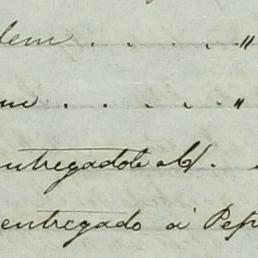 dem . . . . . "
m . . . . . "
entregadole al C/.
entregado á Pep